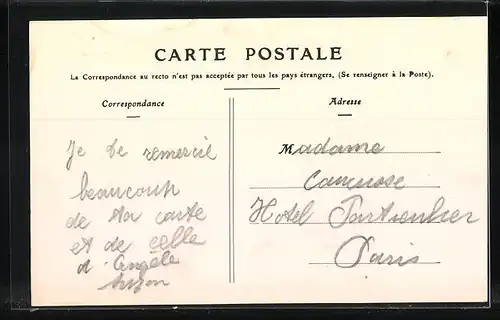 CARTE POSTALE
La Correspondance au recto n'est pas acceptée par tous les pays étrangers, (Se renseigner à la Poste).
Correspondance
Je te remercie
beaucoup
de ta carte
et de celle
d'Angèle
Adresse
Madame
Hotel
Paris